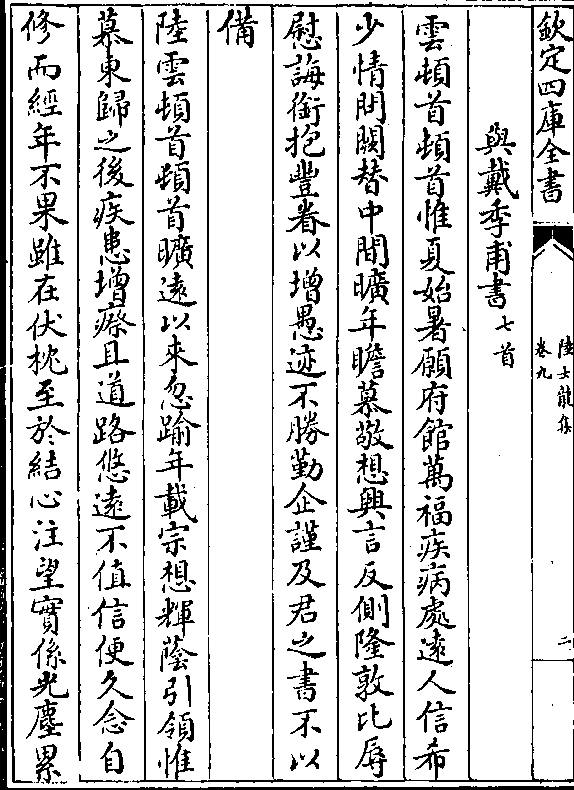 欽定四庫全書
陸士龍集
卷九
二
與戴季甫書七首
雲頓首頓首惟夏始暑願府館萬福疾病處遠人信希
少情問闕替中間曠年瞻慕敬想興言反側隆敦比辱
慰誨銜抱豐眷以增愚迹不勝勤企謹及君之書不以
備
陸雲頓首頓首曠遠以來忽踰年載宗想輝蔭引領惟
慕東歸之後疾患增瘵且道路悠遠不值信便久念自
修而經年不果雖在伏枕至於結心注望實係光塵累